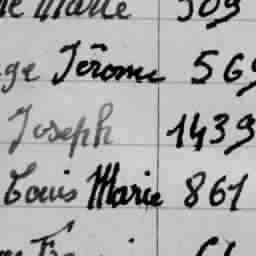 Marie 509
ge Jérome 569
Joseph 1439
Louis Marie 861